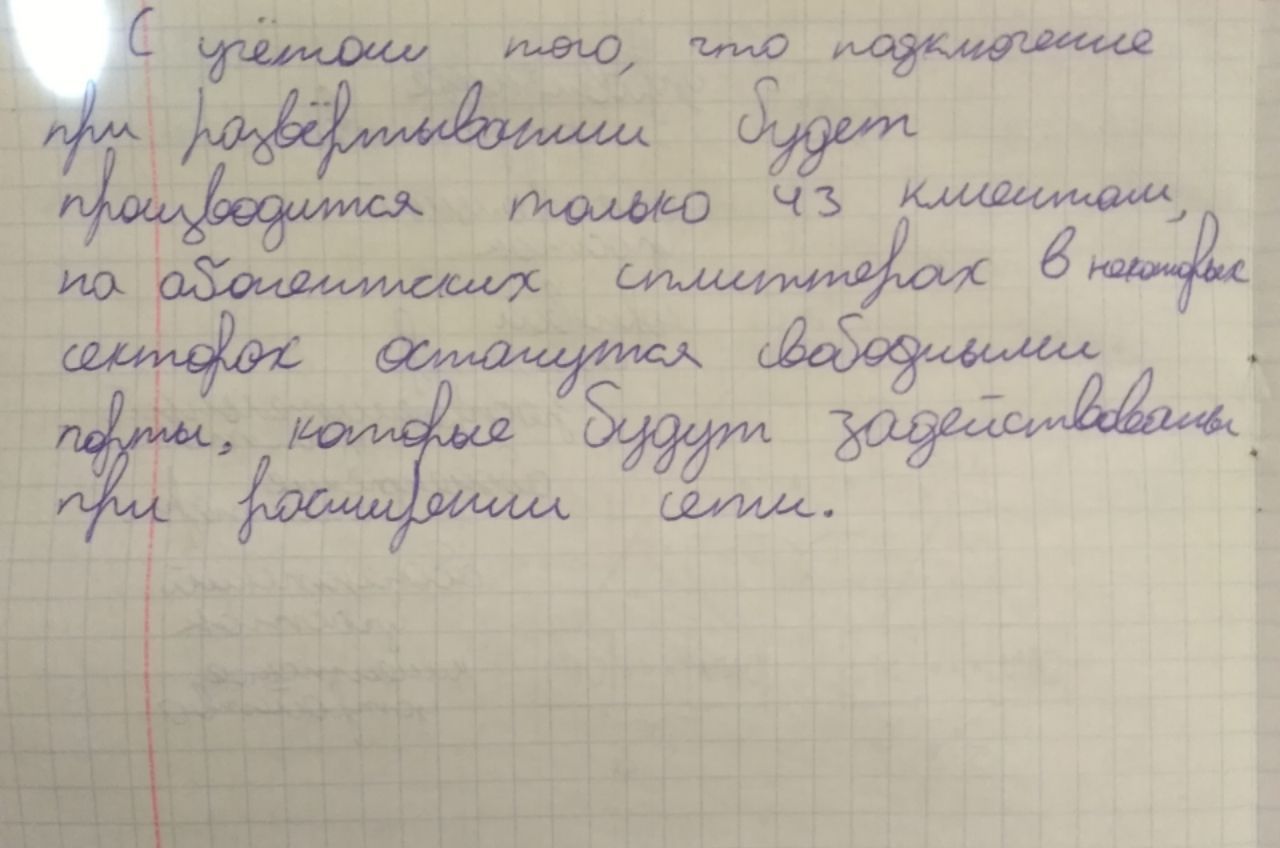 С учётом того, что подключение
при развёртывании будет
производится только 43 клиентам,
на абонентских сплиттерах в некоторых
секторах останутся свободными
порты, которые будут задействованы
при расширении сети.